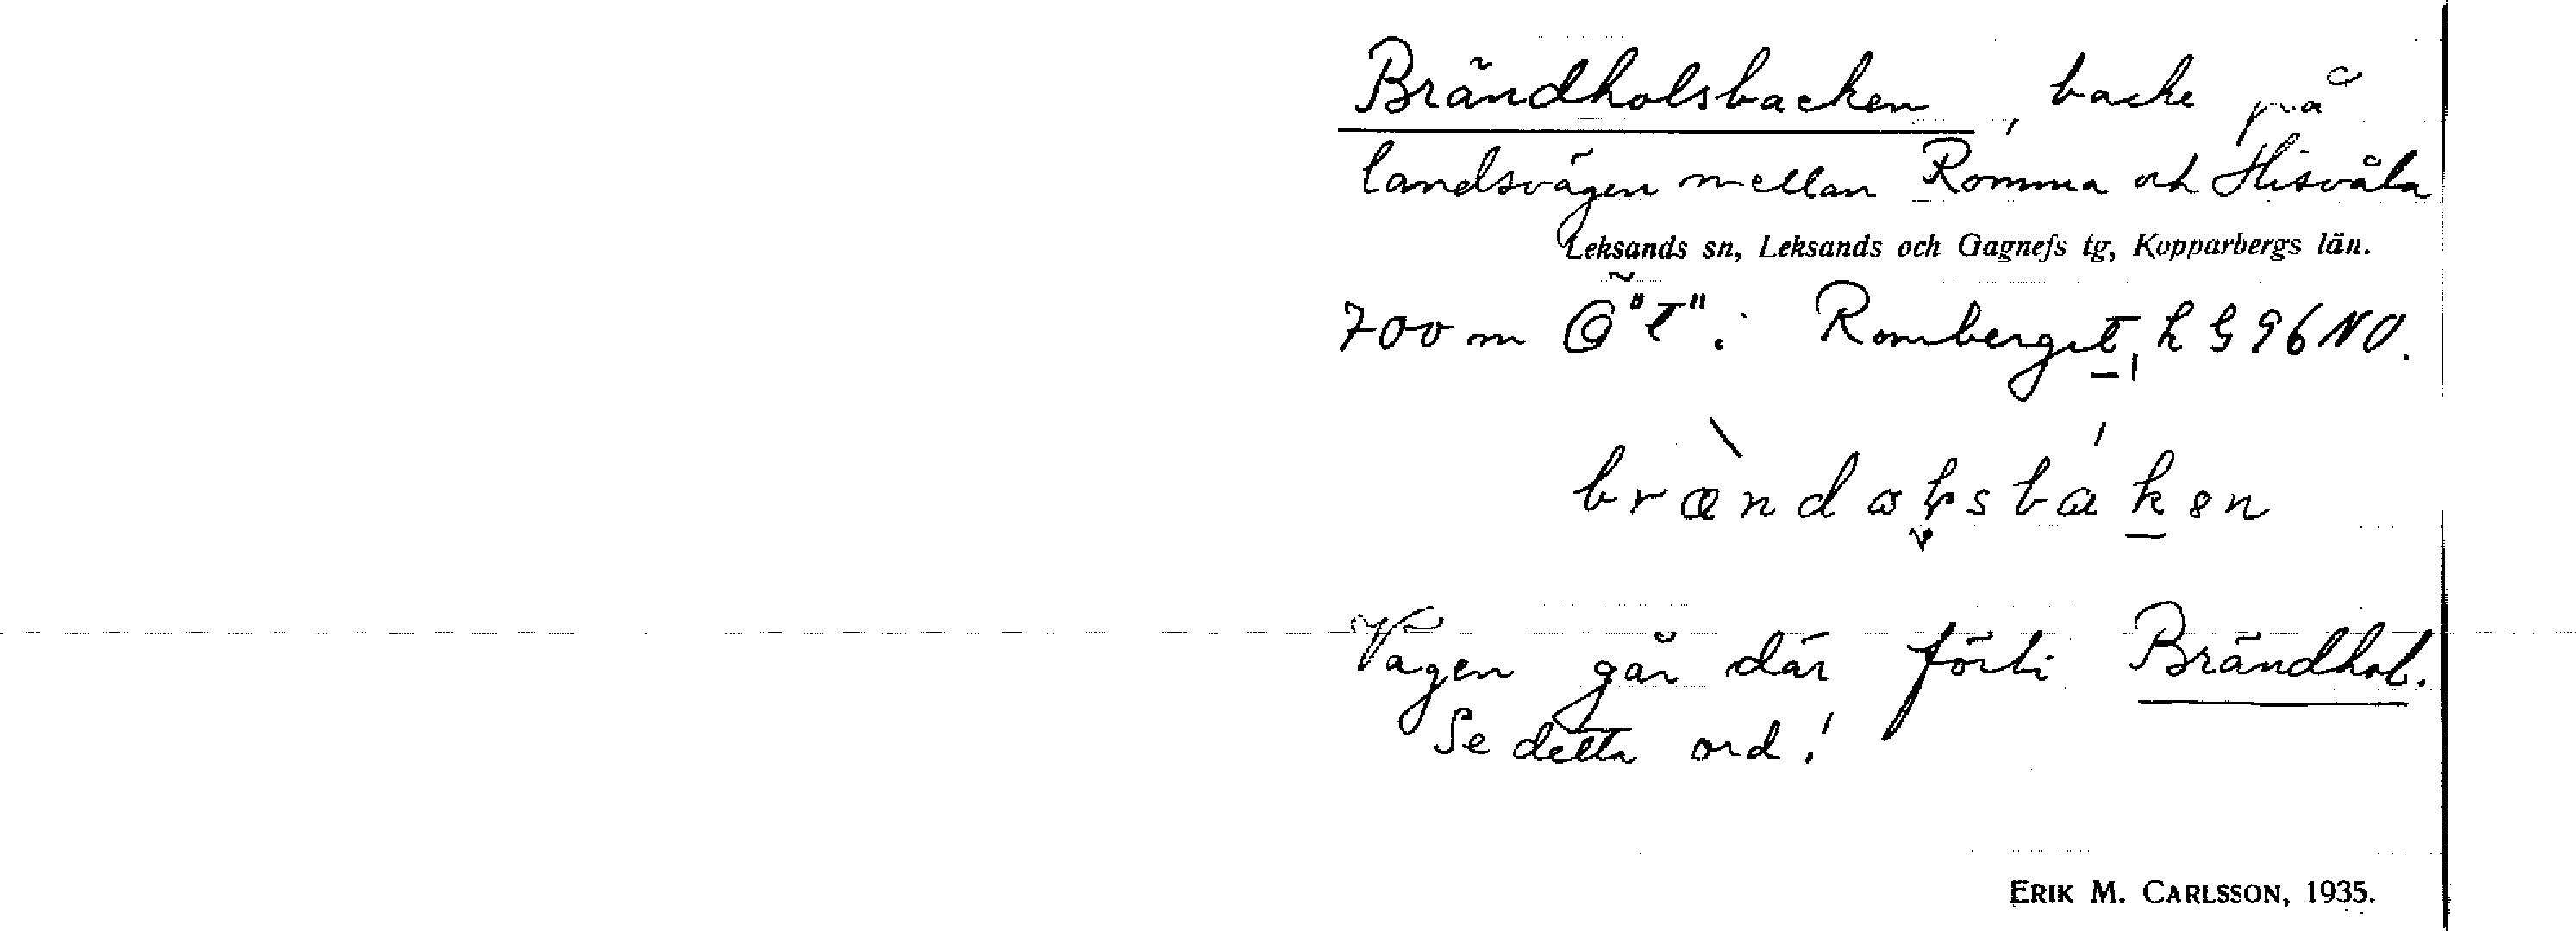 Brändholsbacken, backe på
landsvägen mellan Romma och Hisvåla
Leksands sn, Leksands och Gagnefs tg, Kopparbergs län.
700 m Ö "t" i Romberget, k G 96 NO.
Vägen går där förbi Brändhol.
Se detta ord!
ERIK M. CARLSSON, 1935.